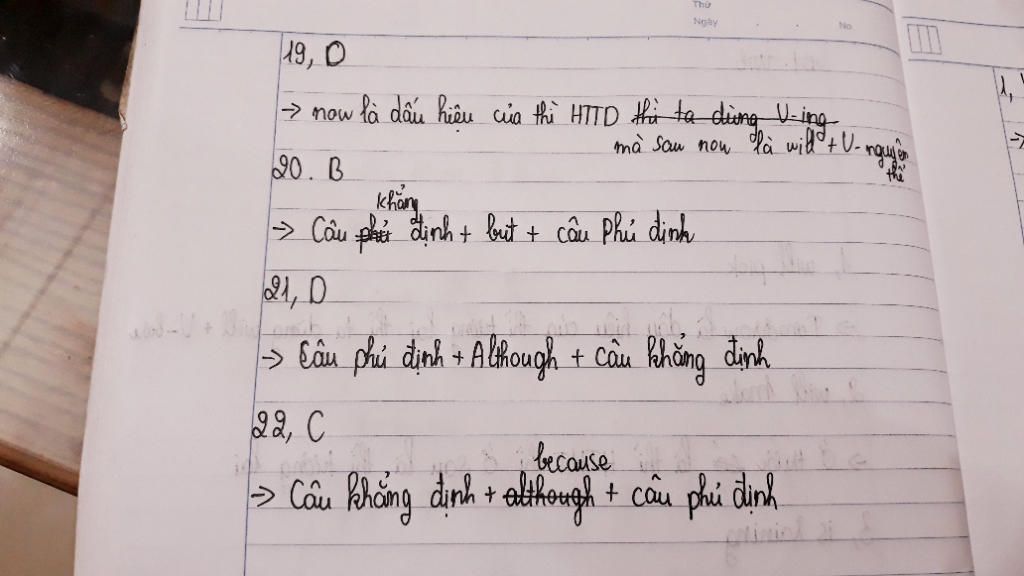 Thứ
Ngày . . No
19, D
→ now là dấu hiệu của thì HTTD thì ta dùng V-ing
mà sau now là will + V-nguyên
thể
20. B
khẳng
→ Câu phủ định + but + câu Phủ định
21, D
→ Câu phủ định + Although + câu khẳng định
22, C
because
→ Câu khẳng định + although + câu phủ định
1,
→